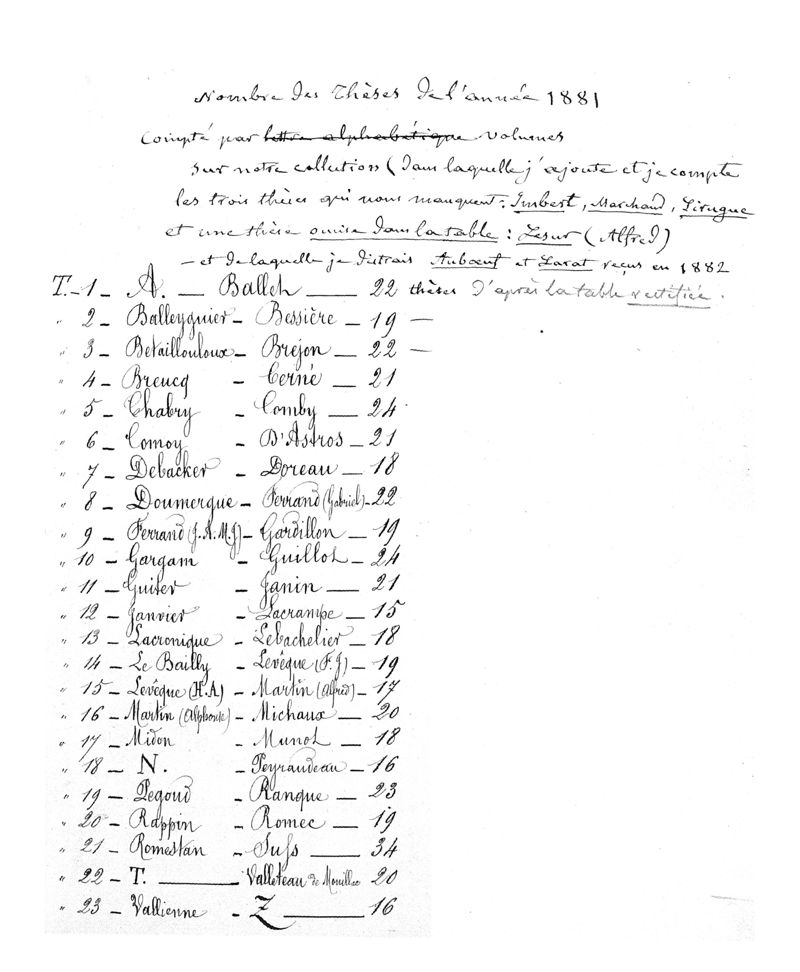 Nombre des Thèses de l'année 1881
Compté par lettre alphabétique volumes
sur notre collection (dans laquelle j'ajoute et je compte
les trois thèses qui nous manquent : Imbert, Marchand, Sirugue
et une thèse omise dans la table : Lesur (Alfred)
— et de laquelle je distrais Auboeuf et Larat reçus en 1882
T. - 1 - A. — Ballet — 22 thèses d'après la table rectifiée.
" 2 - Balleyguier - Bessière - 19 —
" 3 - Betaillouloux - Brejon — 22 —
" 4 - Breucq - Cerné — 21
" 5 - Chabry - Comby — 24
" 6 - Comoy - D'Astros - 21
" 7 - Debacker - Doreau — 18
" 8 - Doumergue - Ferrand (Gabriel) - 22
" 9 - Ferrand (J.A.M.J) - Gardillon — 19
" 10 - Gargam - Guillot - 24
" 11 - Guiter - Janin — 21
" 12 - Janvier - Lacrampe — 15
" 13 - Lacronique - Lebachelier - 18
" 14 - Le Bailly - Levêque (F.J) - 19
" 15 - Levêque (H.A) - Martin (Alfred) - 17
" 16 - Martin (Alphonse) - Michaux — 20
" 17 - Midon - Munot — 18
" 18 - N. - Peyraudeau - 16
" 19 - Pegoud - Ranque — 23
" 20 - Rappin - Romec — 19
" 21 - Romestan - Suss — 34
" 22 - T. — Valleteau de Mouillac 20
" 23 - Vallienne - Z — 16